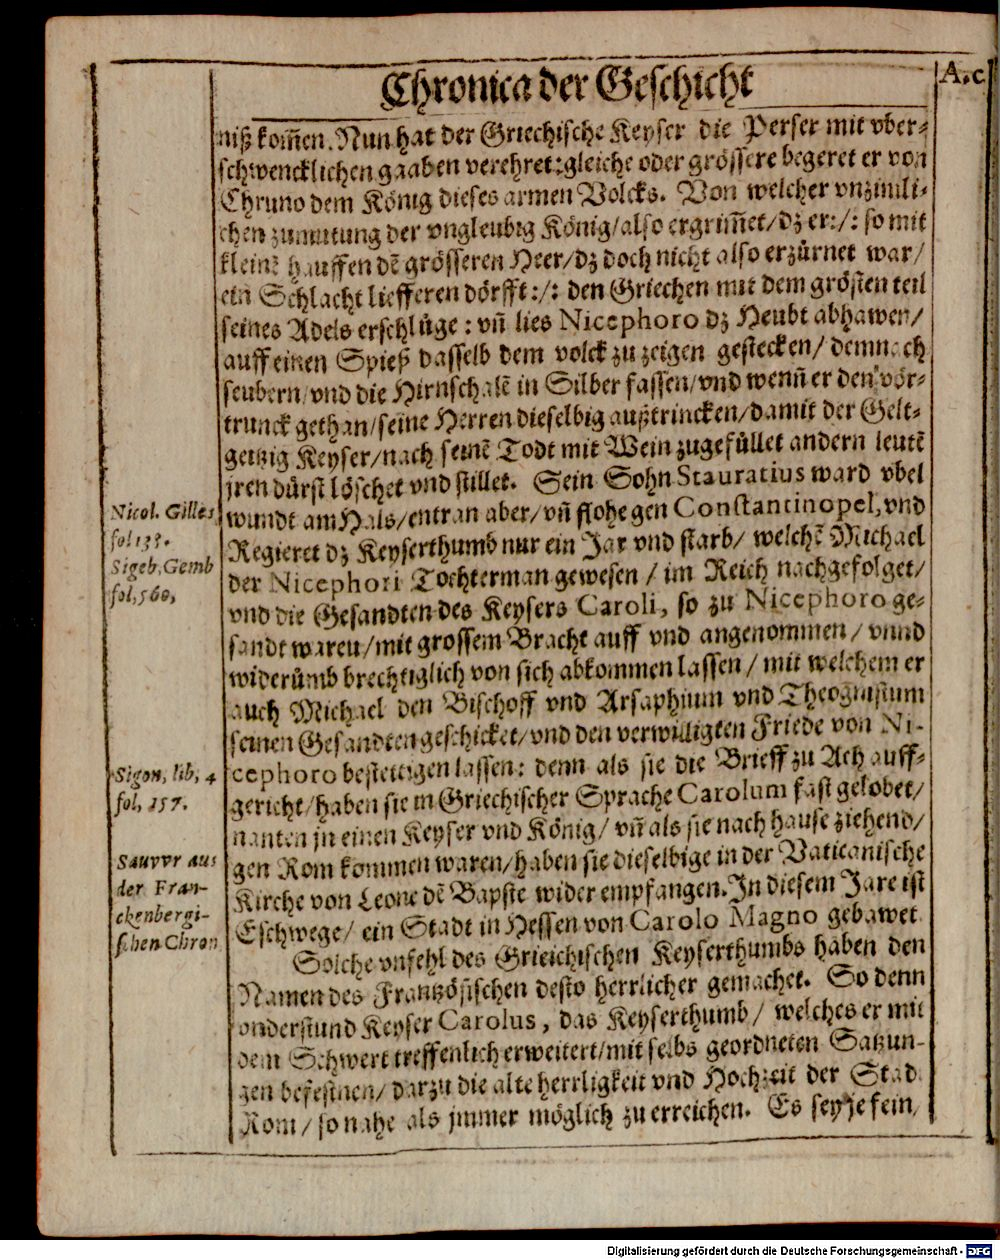 Chronica der Geschicht
A.c
niß kom̃en. Nun hat der Griechische Keyser die Perser mit vber-
schwencklichen gaaben verehret: gleiche oder grössere begeret er von
Chruno dem König dieses armen Volcks. Von welcher vnzimli-
chen zumutung der vngleubig König/also ergrim̃et/dz er:/: so mit
kleinẽ hauffen dẽ grösseren Heer/dz doch nicht also erzürnet war/
ein Schlacht liefferen dörfft:/: den Griechen mit dem grösten teil
seines Adels erschlüge: vñ lies Nicephoro dz Heubt abhawen/
auff einen Spieß dasselb dem volck zu zeigen gestecken/ demnach
seubern/vnd die Hirnschalẽ in Silber fassen/vnd wenñ er den vor-
trunck gethan/seine Herren dieselbig außtrincken/damit der Gelt-
geitzig Keyser/nach seinẽ Todt mit Wein zugefüllet andern leutẽ
jren dürst löschet vnd stillet. Sein Sohn Stauratius ward vbel
wundt am Hals/entran aber/vñ flohe gen Constantinopel, vnd
Regieret dz Keyserthumb nur ein Jar vnd starb/ welchẽ Michael
der Nicephori Tochterman gewesen / im Reich nachgefolget/
vnd die Gesandten des Keysers Caroli, so zu Nicephoro ge-
sandt waren/mit grossem Bracht auff vnd angenommen/ vnnd
widerümb brechtiglich von sich abkommen lassen/ mit welchem er
auch Michael den Bischoff vnd Arsaphium vnd Theognistum
seinen Gesandten geschicket/vnd den verwilligten Friede von Ni-
cephoro bestettigen lassen: denn als sie die Brieff zu Ach auff-
gericht/haben sie in Griechischer Sprache Carolum fast gelobet/
nanten jn einen Keyser vnd König/ vñ als sie nach hause ziehend/
gen Rom kommen waren/haben sie dieselbige in der Vaticanische
Kirche von Leone dẽ Bapste wider empfangen. In diesem Jare ist
Eschwege/ ein Stadt in Hessen von Carolo Magno gebawet.
Solche vnfehl des Grieichischen Keyserthumbs haben den
Namen des Frantzösischen desto herrlicher gemachet. So denn
onderstund Keyser Carolus, das Keyserthumb/ welches er mit
dem Schwert treffenlich erweitert/mit selbs geordneten Satzun-
gen befestnen/ darzu die alte herrligkeit vnd Hochzeit der Stad
Rom/ so nahe als jmmer möglich zu erreichen. Es sey je fein/
Nicol. Gilles
fol 133.
Sigeb. Gemb
fol, 560,
Sigon, lib, 4
fol, 157.
Sauvvr aus
der Fran-
ckenbergi-
schen Chron
Digitalisierung gefördert durch die Deutsche Forschungsgemeinschaft - DFG